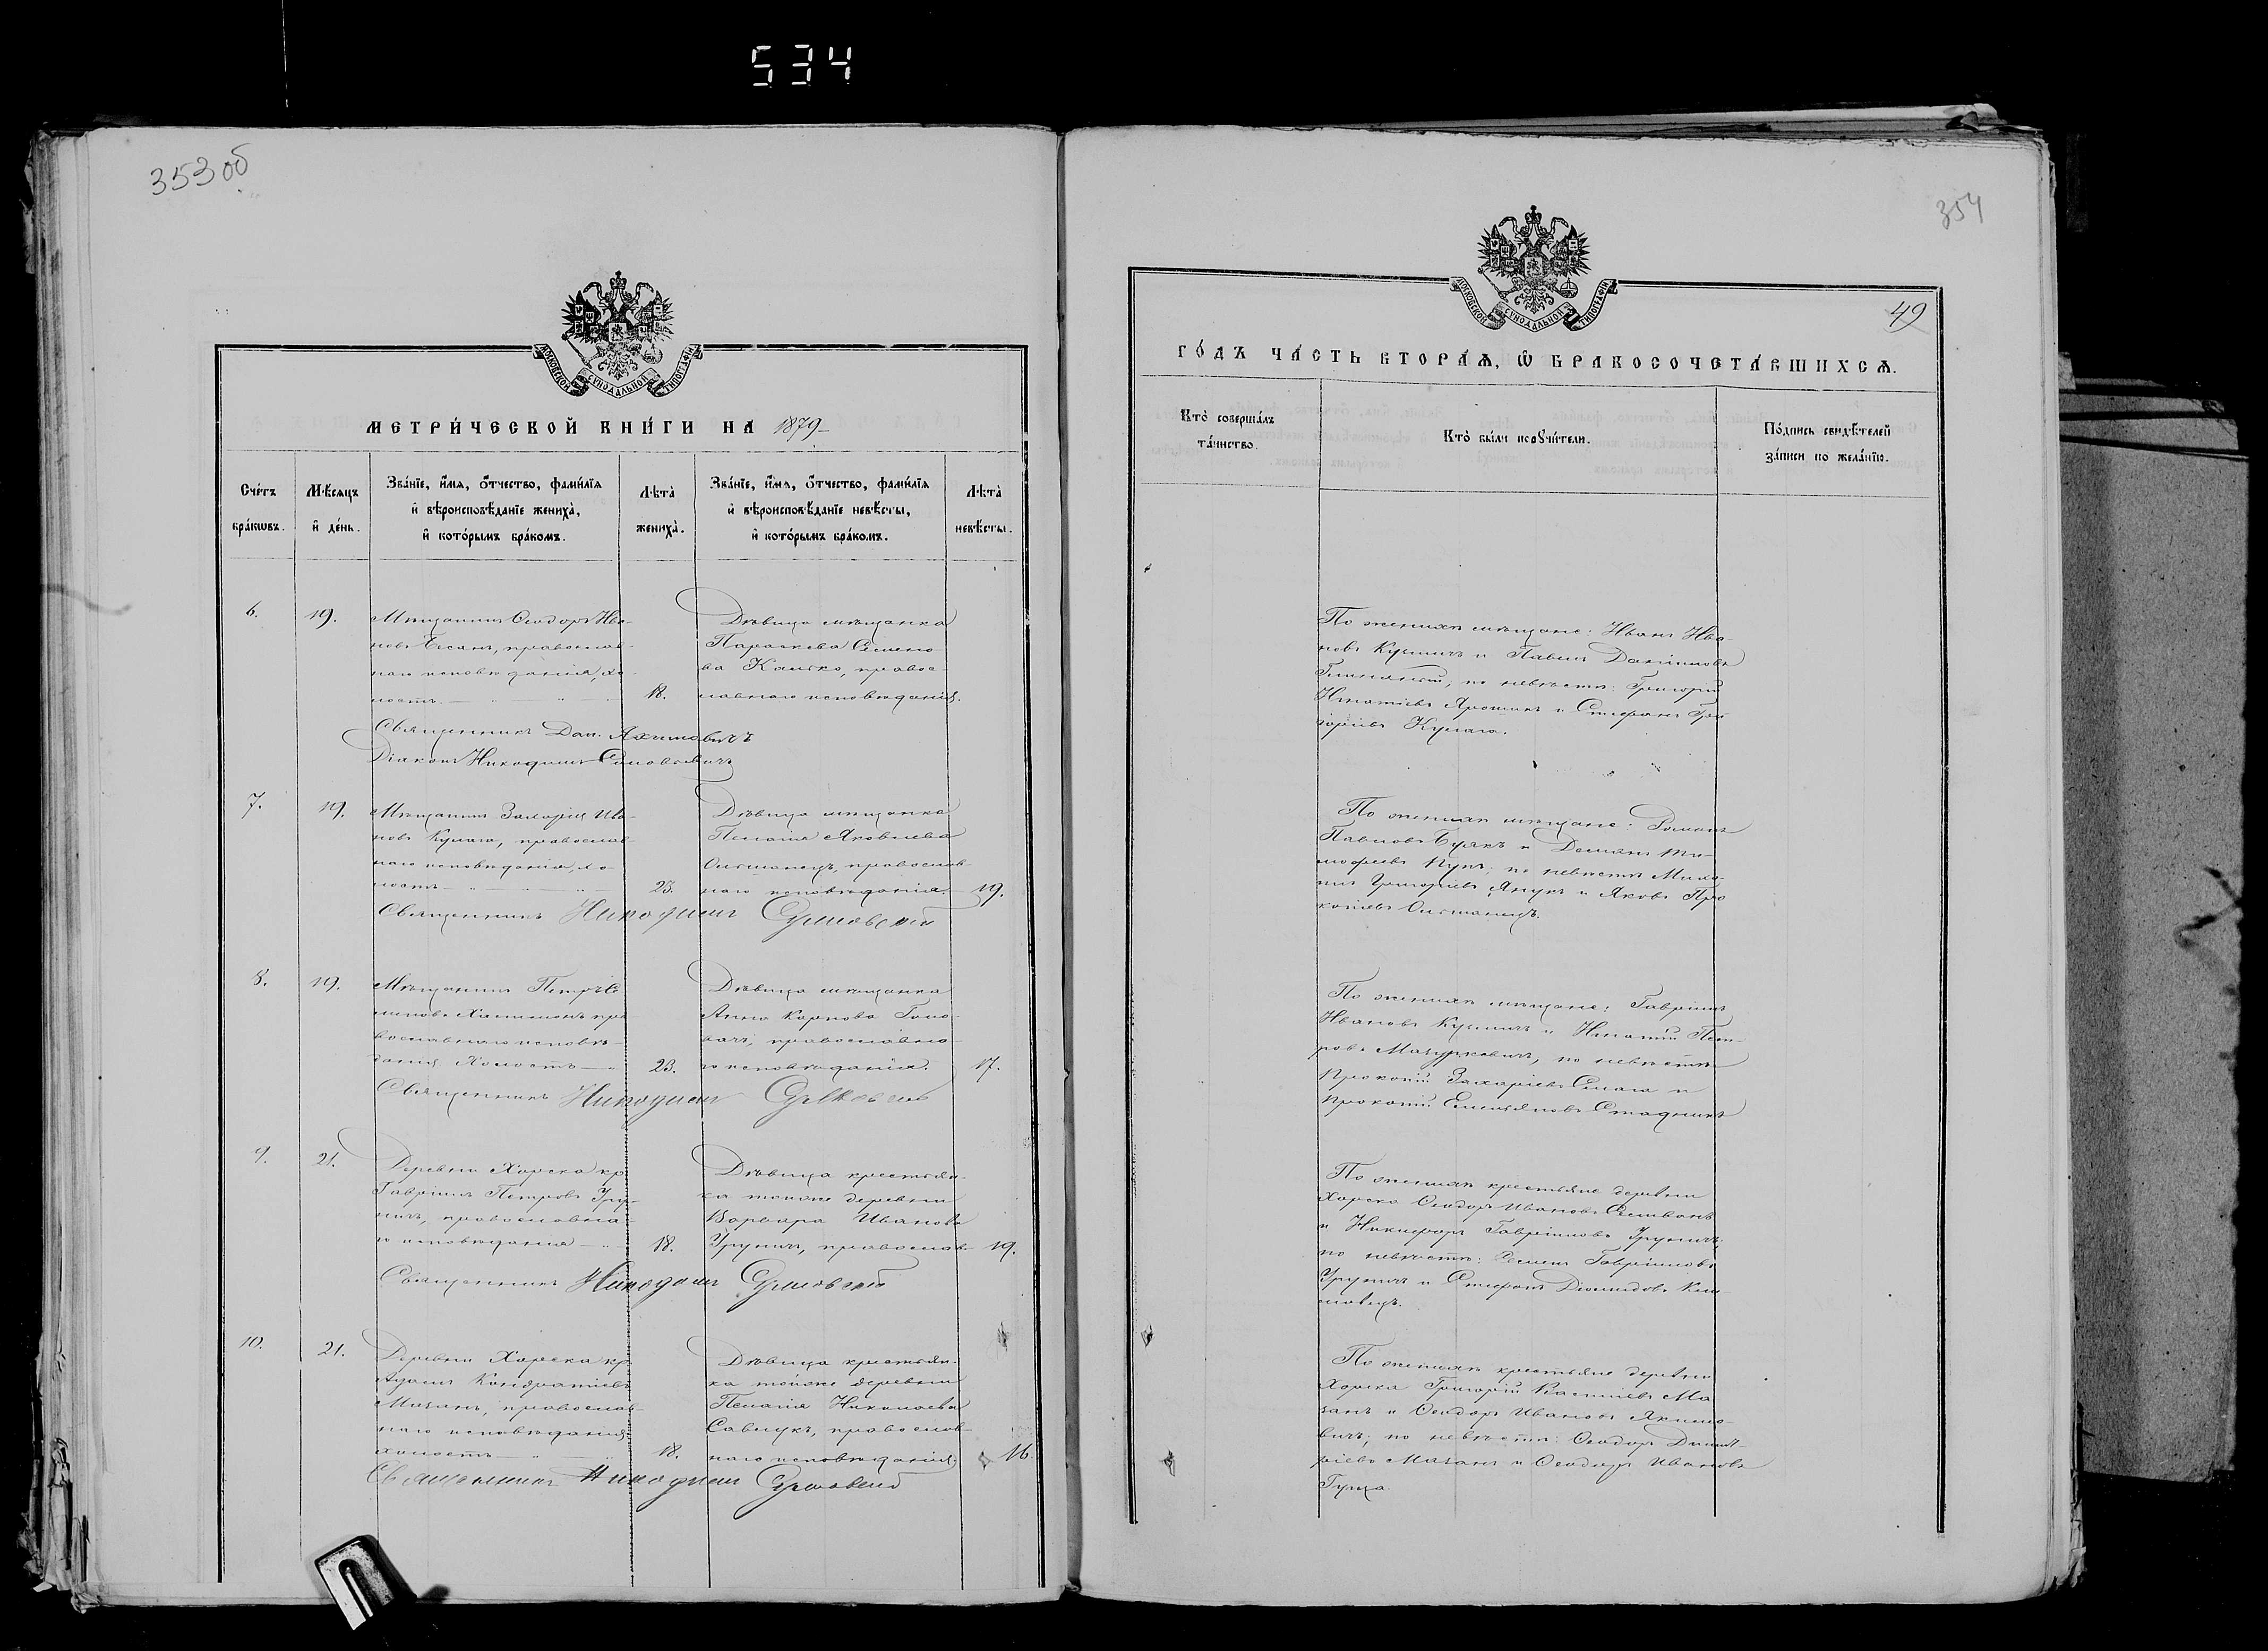 534
353 об
МОСКОВСКОЙ СѴНОДАЛЬНОЙ ТИПОГРАФІИ
МЕТРИ́ЧЕСКОЙ КНИ́ГИ НА 1879
Сче́тъ бра́ковъ.
Мѣ́сяцъ и҆ де́нь.
Зва́нїе, и҆́мя, ѻ҆́тчество, фами́лїя
и҆ вѣроисповѣ́данїе жениха̀,
и҆ кото́рымъ бра́комъ.
Лѣ́та жениха̀.
Зва́нїе, и҆́мя, ѻ҆́тчество, фами́лїя
и҆ вѣроисповѣ́данїе невѣ́сты,
и҆ кото́рымъ бра́комъ.
Лѣ́та невѣ́сты.
6.
19.
Мѣщанинъ Ѳеодоръ Ива-
новъ православ-
наго исповѣданія, хо-
лостъ.
18.
Дѣвица мѣщанка
Параскева Семено-
ва правос-
лавнаго исповѣданія.
Священникъ Дан. Акимовичъ
Діаконъ Никодимъ
7.
19.
Мѣщанинъ Захарій Ива-
новъ Кулага, православ-
наго исповѣданія, хо-
лостъ
23.
Дѣвица мѣщанка
Пелагія Яковлева
Ольшанецъ, православ-
наго исповѣданія.
19.
Священникъ Никодимъ
8.
19.
Мѣщанинъ Петръ
пра-
вославнаго исповѣ-
данія Холостъ
23.
Дѣвица мѣщанка
Анна Карпова Голо-
вачъ, православна-
го исповѣданія.
17.
Священникъ Никодимъ
9.
21.
Деревни Хорска кр.
Гавріилъ Петровъ Уру-
ничъ, православна-
го исповѣданія
18.
Дѣвица крестьян-
ка тойже деревни
Варвара Иванова
Уруничъ, православ-
19.
Священникъ Никодимъ
10.
21.
Деревни Хорска кр.
Адамъ Кондратіевъ
Мазанъ, православ-
наго исповѣданія
холостъ
18.
Дѣвица крестьян-
ка тойже деревни
Пелагія Николаева
Савчукъ, православ-
наго исповѣданія
16.
Священникъ Никодимъ
354
49
МОСКОВСКОЙ СѴНОДАЛЬНОЙ ТИПОГРАФІИ
ГО́ДЪ ЧА́СТЬ ВТОРА́Ѧ, Ѽ БРАКОСОЧЕТА́ВШИХСѦ.
Кто̀ соверша́лъ
та́инство.
Кто̀ бы́ли порꙋчи́тели.
По́дпись свидѣ́телей
за́писи по жела́нїю.
По женихѣ мѣщане: Иванъ Ива-
новъ Кузмичъ и Павелъ Даніиловъ
по невѣстѣ: Григорій
Игнатіевъ Ярошикъ и Стефанъ Гри-
горіевъ Кулага.
По женихѣ мѣщане: Романъ
Павловъ и Демьянъ Ти-
мофеевъ по невѣстѣ
Григоріевъ Янукъ и Яковъ Про-
копіевъ Ольшанецъ.
По женихѣ мѣщане: Гавріилъ
Ивановъ Кузмичъ и Игнатій Пет-
ровъ Мазуркевичъ, по невѣстѣ
Прокопій Захаріевъ и
Прокопій Емельяновъ Стадникъ
По женихѣ крестьяне деревни
Хорска Ѳеодоръ Ивановъ
и Никифоръ Гавріиловъ Уруничъ;
по невѣстѣ: Семенъ Гавріиловъ
Уруничъ и Стефанъ Діомидовъ Кли-
мовецъ.
По женихѣ крестьяне деревни
Хорска Григорій Василіевъ Ма-
занъ и Ѳеодоръ Ивановъ Якимо-
вичъ; по невѣстѣ: Ѳеодоръ Димит-
ріевъ Мазанъ и Ѳеодоръ Ивановъ